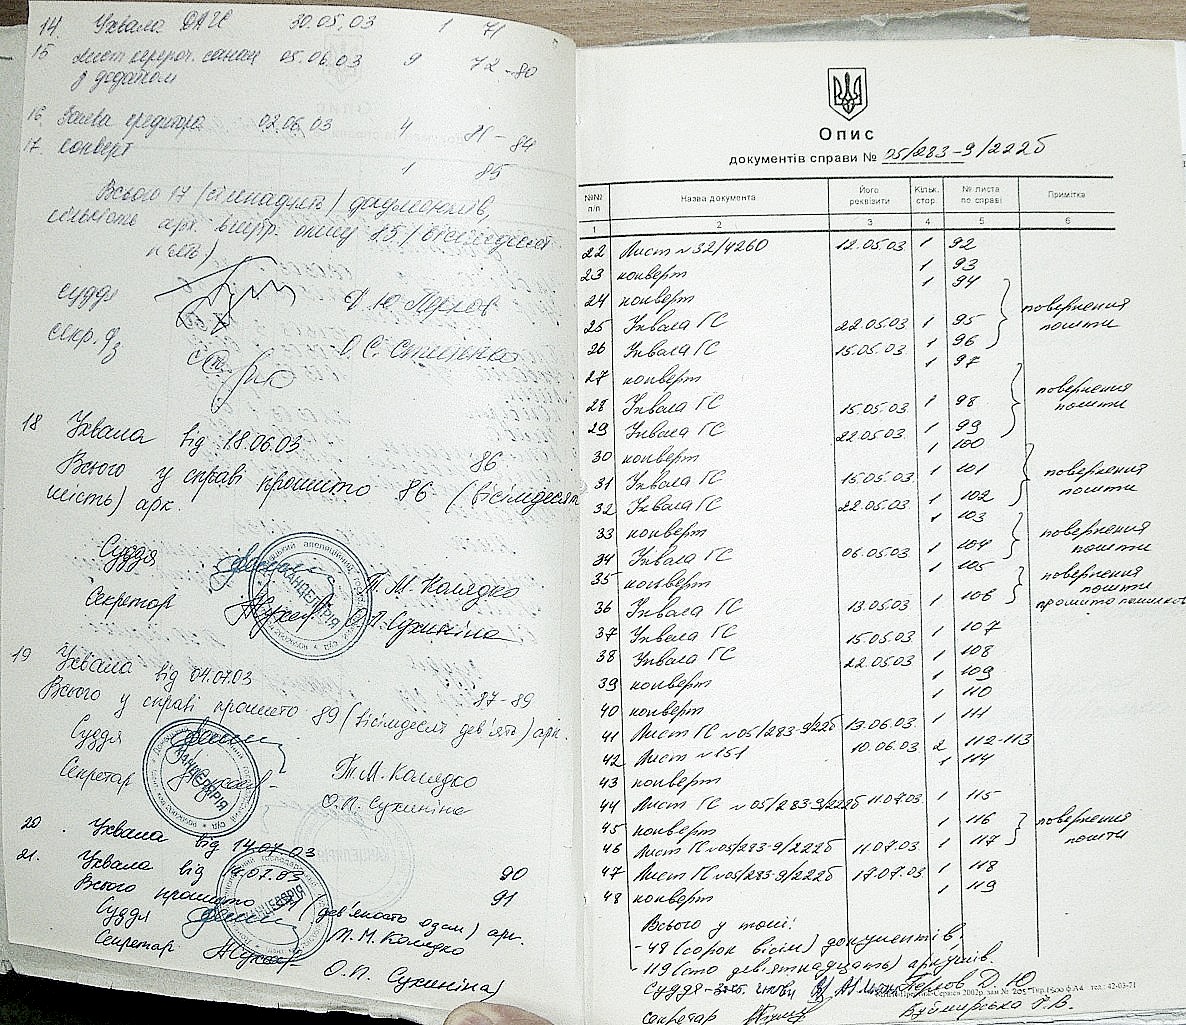 14. Ухвала ДАГС 30.05.03 1 71
15 Лист 05.06.03 9 72-80
з додатком
16. Заява кредитора 02.06.03 4 81-84
17. конверт 1 85
Всього 17 (сімнадцять) документів,
кількість арк. внутр. опису 85 (вісімдесят
п'ять)
суддя Д. Ю.
секр. О. С.
18 Ухвала від 18.06.03 86
Всього у справі прошито 86 (вісімдесят
шість) арк.
Суддя Т. М. Колядко
Секретар О. П. Сухиніна
КАНЦЕЛЯРІЯ
19 Ухвала від 04.07.03 87-89
Всього у справі прошито 89 (вісімдесят дев'ять) арк.
Суддя Т. М. Колядко
Секретар О. П. Сухиніна
КАНЦЕЛЯРІЯ
20. Ухвала від 14.07.03 90
21. Ухвала від 91
Всього прошито 91 (дев'яносто один) арк.
Суддя Т. М. Колядко
Секретар О. П. Сухиніна
КАНЦЕЛЯРІЯ
Опис
документів справи № 05/283-9/222б
№№ п/п Назва документа Його реквізити Кільк. стор. № листа по справі Примітка
1 2 3 4 5 6
22 Лист №32/4260 12.05.03 1 92
23 конверт 1 93
24 конверт 1 94 повернення
25 Ухвала ГС 22.05.03 1 95 пошти
26 Ухвала ГС 15.05.03 1 96
27 конверт 1 97
28 Ухвала ГС 15.05.03 1 98 повернення
29 Ухвала ГС 22.05.03 1 99 пошти
30 конверт 1 100
31 Ухвала ГС 15.05.03 1 101 повернення
32 Ухвала ГС 22.05.03 1 102 пошти
33 конверт 1 103 повернення
34 Ухвала ГС 06.05.03 1 104 пошти
35 конверт 1 105 повернення пошти
36 Ухвала ГС 13.05.03 1 106 прошито помилково
37 Ухвала ГС 15.05.03 1 107
38 Ухвала ГС 22.05.03 1 108
39 конверт 1 109
40 конверт 1 110
41 Лист ГС №05/283-9/222б 13.06.03 1 111
42 Лист №151 10.06.03 2 112-113
43 конверт 1 114
44 Лист ГС №05/283-9/222б 11.07.03 1 115
45 конверт 1 116 повернення
46 Лист ГС №05/283-9/222б 11.07.03 1 117 пошти
47 Лист ГС №05/283-9/222б 17.07.03 1 118
48 конверт 1 119
Всього у томі:
- 48 (сорок вісім) документів,
- 119 (сто дев'ятнадцять) аркушів.
Суддя Д. Ю.
секретар